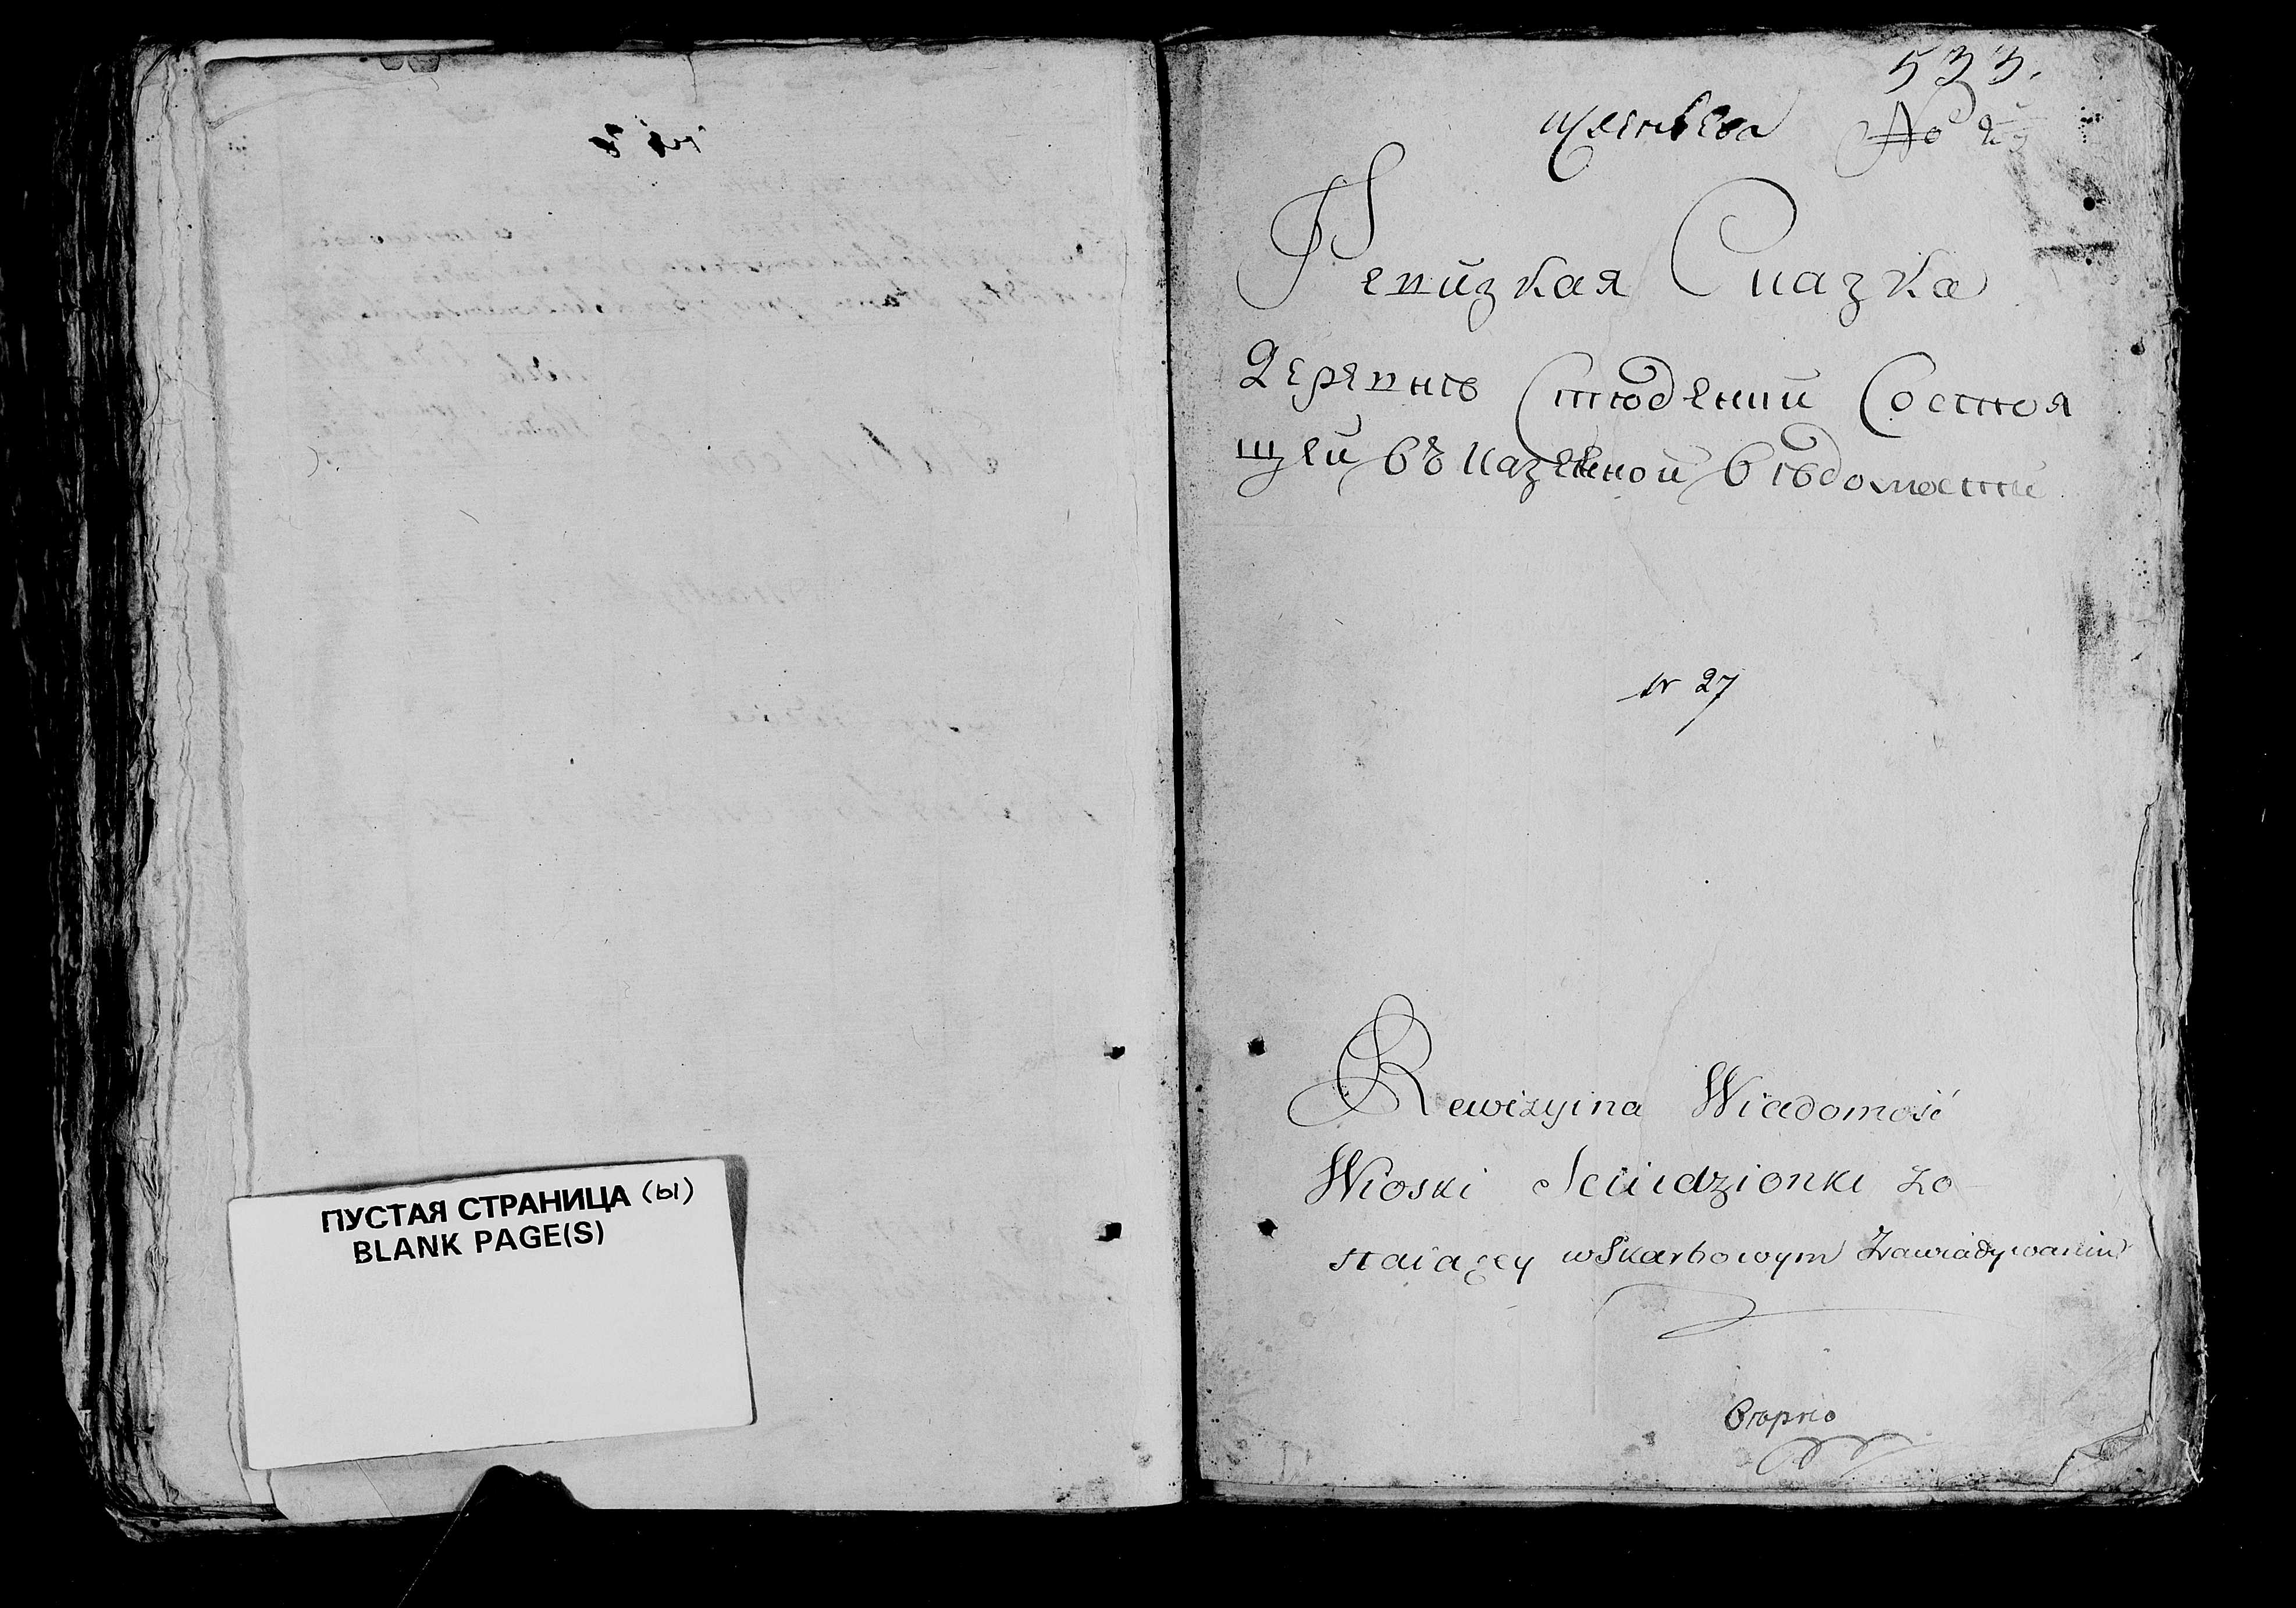 ПУСТАЯ СТРАНИЦА (Ы)
BLANK PAGE(S)
533.
No
Ревизкая Сказка
Деревнѣ Стюденки Состоя
щей въ Казенной вѣдомости
N 27
Rewizyina Wiadomość
Wioski Sciudzionki zo
staiącey w Skarbowym Zawiadywaniu